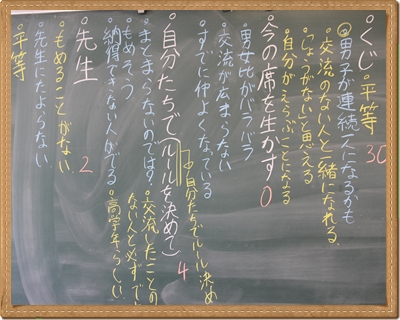 ・くじ・平等 30
男子が連続人になるかも
・交流のない人と一緒になれる。
・「しょうがない」と思える
・自分がえらぶことになる
・今の席を生かす 0
・男女比がバラバラ
・交流が広まらない
・すでに仲よくなっている
・自分たちで(ルールを決めて) 4
自分たちでルール決め
・まとまらないのでは?
・交流したことの
ない人と必ず
・もめそう
・高学年らしい
・納得できない人がでる
・先生 2
・もめることがない
・先生にたよらない
・平等